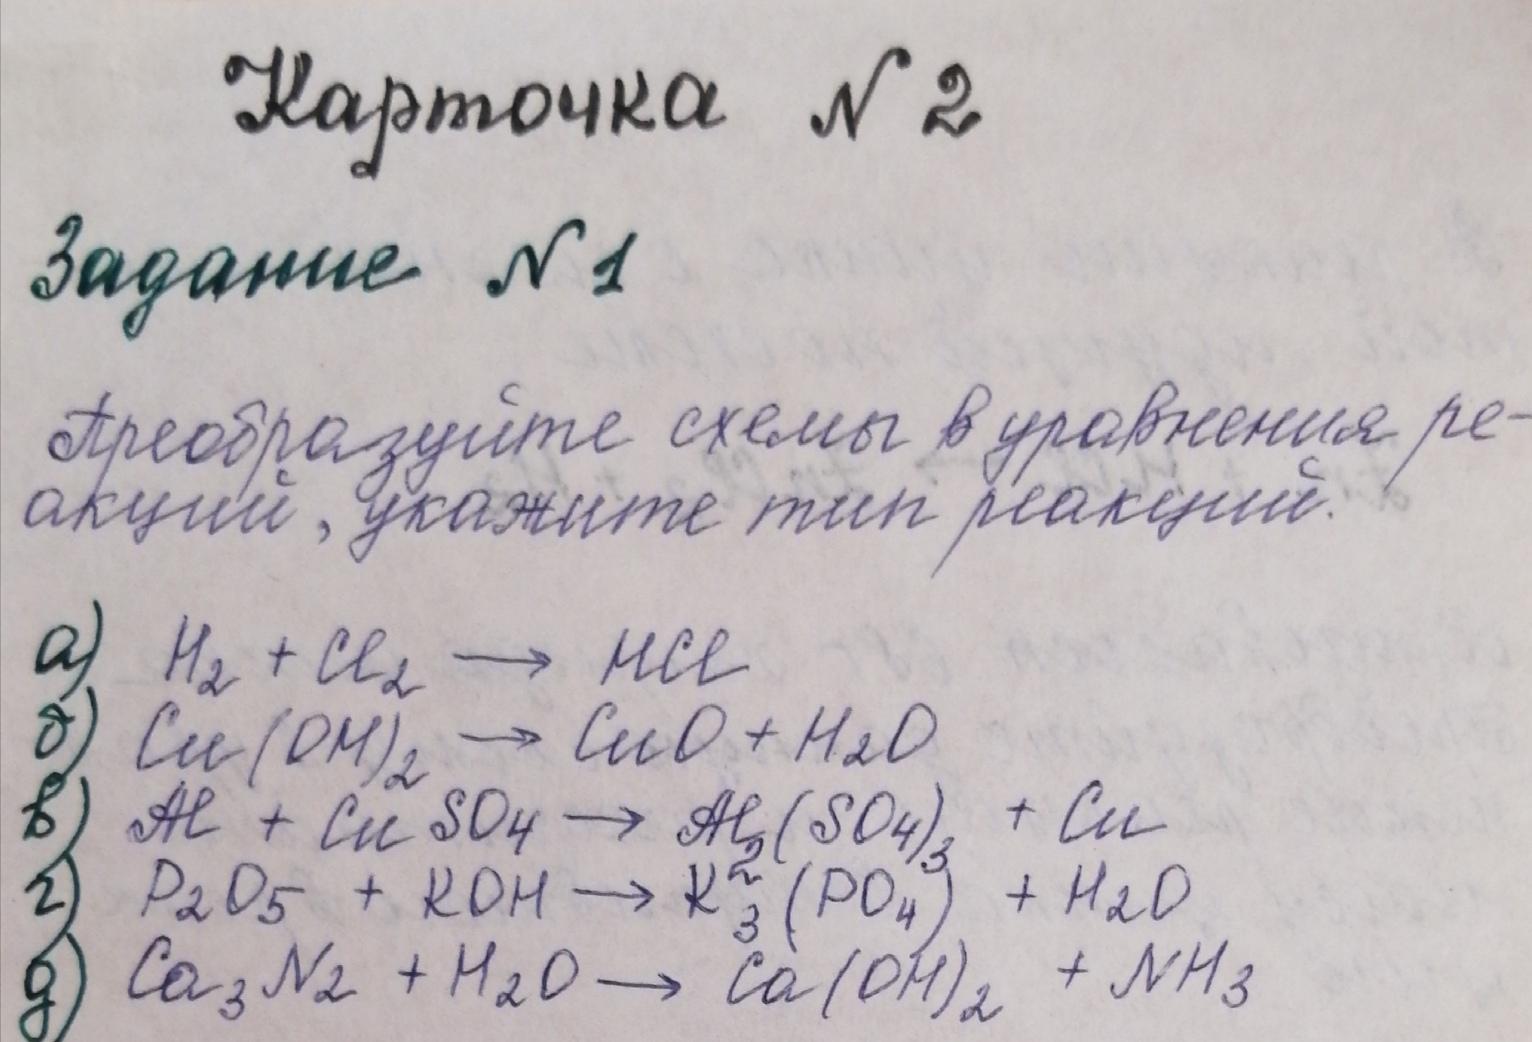 Карточка N 2
Задание N 1
Преобразуйте схемы в уравнения ре-
акций, укажите тип реакций.
а) H₂ + Cl₂ → HCl
б) Cu(OH)₂ → CuO + H₂O
в) Al + CuSO₄ → Al₂(SO₄)₃ + Cu
г) P₂O₅ + KOH → K₃(PO₄) + H₂O
д) Ca₃N₂ + H₂O → Ca(OH)₂ + NH₃